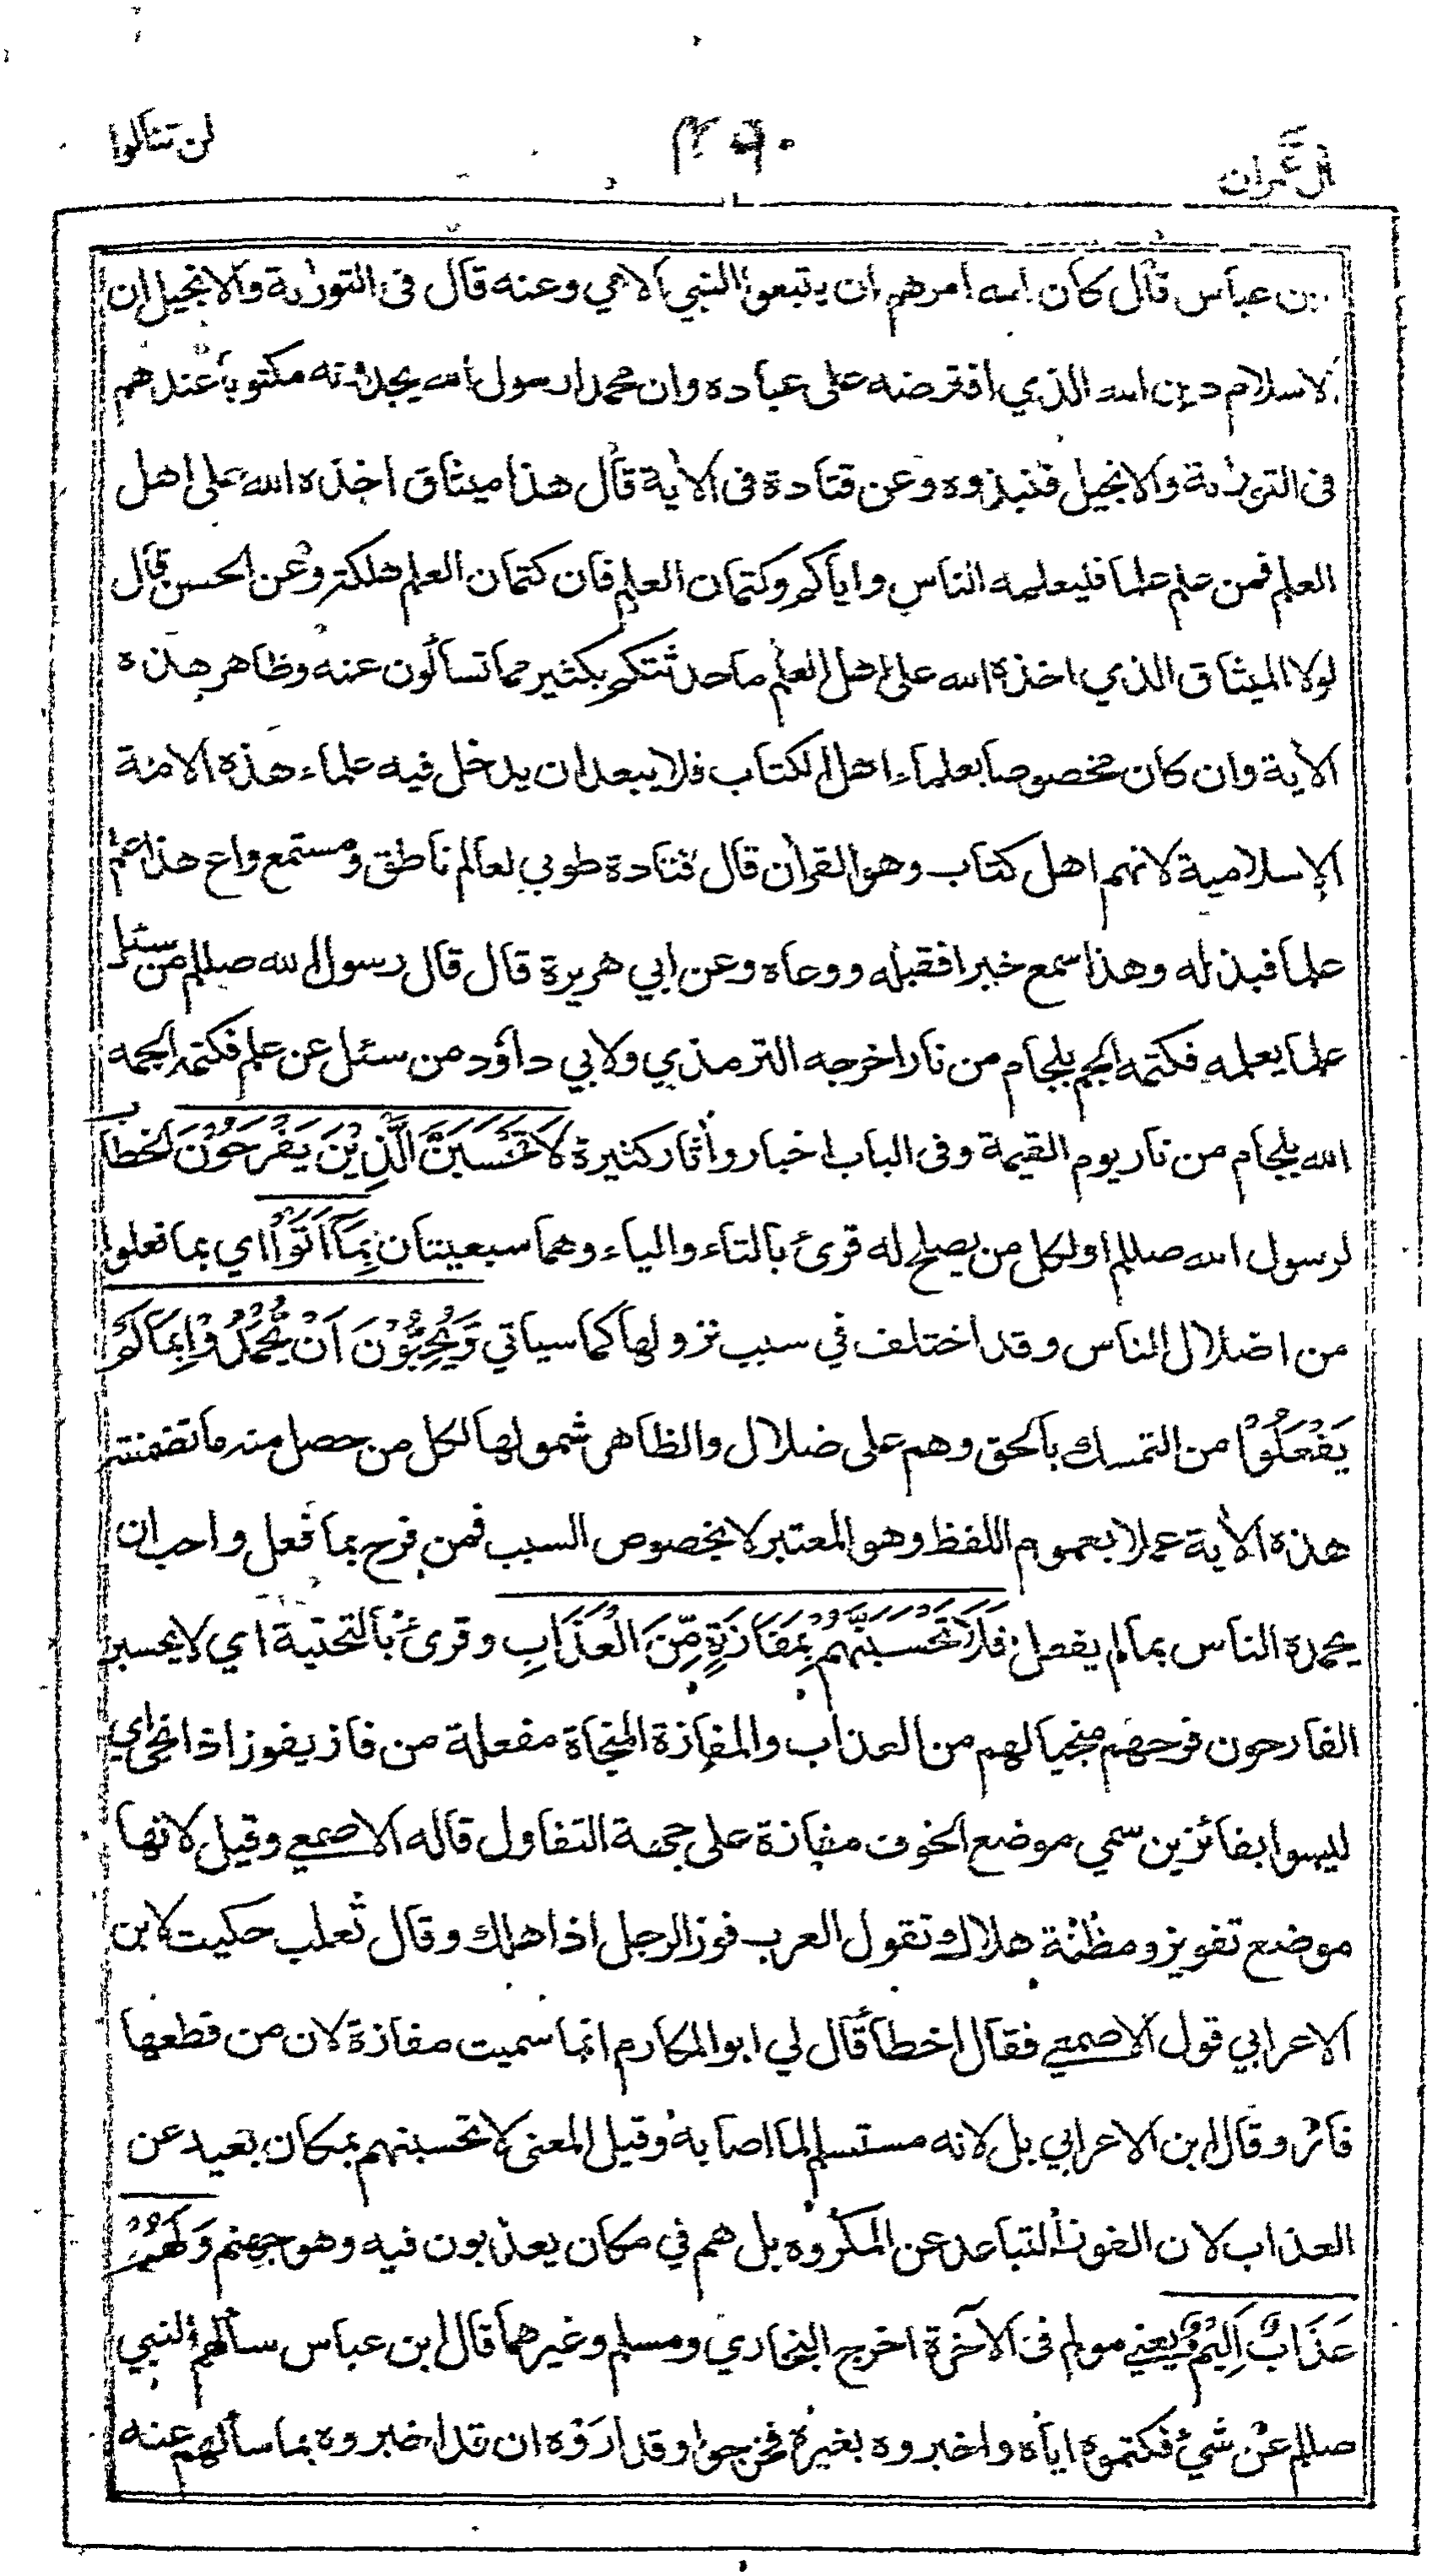 لن تنالوا
آل عمران
بن عباس قال كان الله امرهم ان يتبعوا النبي الامي وعنه قال فى التورٰىة والانجيل ان
الاسلام دين الله الذي افترضه على عباده وان محمدا رسول الله يجدونه مكتوبا عندهم
فى التورٰىة والانجيل فنبذوه وعن قتادة فى الاٰية قال هذا ميثاق اخذه الله على اهل
العلم فمن علم علما فليعلمه الناس واياكم وكتمان العلم فان كتمان العلم هلكة وعن الحسن قال
لولا الميثاق الذي اخذه الله على اهل العلم ما حدثتكم بكثير مما تسألون عنه وظاهر هذه
الاٰية وان كان مخصوصا بعلماء اهل الكتاب فلا يبعد ان يدخل فيه علماء هذه الامة
الإسلامية لانهم اهل كتاب وهو القراٰن قال قتادة طوبي لعالم ناطق ومستمع واع هذا علم
علما فبذله وهذا سمع خبرا فقبله ووعاه وعن ابي هريرة قال قال رسول الله صللم من سئل
علما يعلمه فكتمه الجم بلجام من نار اخرجه الترمذي ولابي داؤد من سئل عن علم فكتمه الجمه
الله بلجام من نار يوم القيمة وفى الباب اخبار واٰثار كثيرة لَا تَحْسَبَنَّ الَّذِيْنَ يَفْرَحُوْنَ الخطاب
لرسول الله صللم او لكل من يصلح له قرئ بالتاء والياء وهما سبعيتان بِمَآ اَتَوْا اي بما فعلوا
من اضلال الناس وقد اختلف في سبب نزولها كما سياتي وَّيُحِبُّوْنَ اَنْ يُّحْمَدُوْا بِمَا لَمْ
يَفْعَلُوْا من التمسك بالحق وهم على ضلال والظاهر شمولها لكل من حصل منه ما تضمنته
هذه الاٰية عملا بعموم اللفظ وهو المعتبر لا بخصوص السبب فمن فرح بما فعل واحب ان
يحمده الناس بما لم يفعل فَلَا تَحْسَبَنَّهُمْ بِمَفَازَةٍ مِّنَ الْعَذَابِ وقرئ بالتحتية اي لا يحسبن
الفارحون فرحهم منجيا لهم من العذاب والمفازة المنجاة مفعلة من فاز يفوز اذا نجى اي
ليسوا بفائزين سمي موضع الخوف مفازة على جهة التفاول قاله الاصمعي وقيل لانها
موضع تفويز ومظنة هلاك وتقول العرب فوز الرجل اذا هلك وقال ثعلب حكيت لابن
الاعرابي قول الاصمعي فقال اخطأ قال لي ابو المكارم انما سميت مفازة لان من قطعها
فاز وقال ابن الاعرابي بل لانه مستسلم لما اصابه وقيل المعنى لا تحسبنهم بمكان بعيد عن
العذاب لان الفوز التباعد عن المكروه بل هم في مكان يعذبون فيه وهو جهنم وَلَهُمْ
عَذَابٌ اَلِيْمٌ يعني مولم فى الآخرة اخرج البخاري ومسلم وغيرهما قال ابن عباس سألهم النبي
صللم عن شئ فكتموه اياه واخبروه بغيره فخرجوا وقد اروه ان قد اخبروه بما سألهم عنه